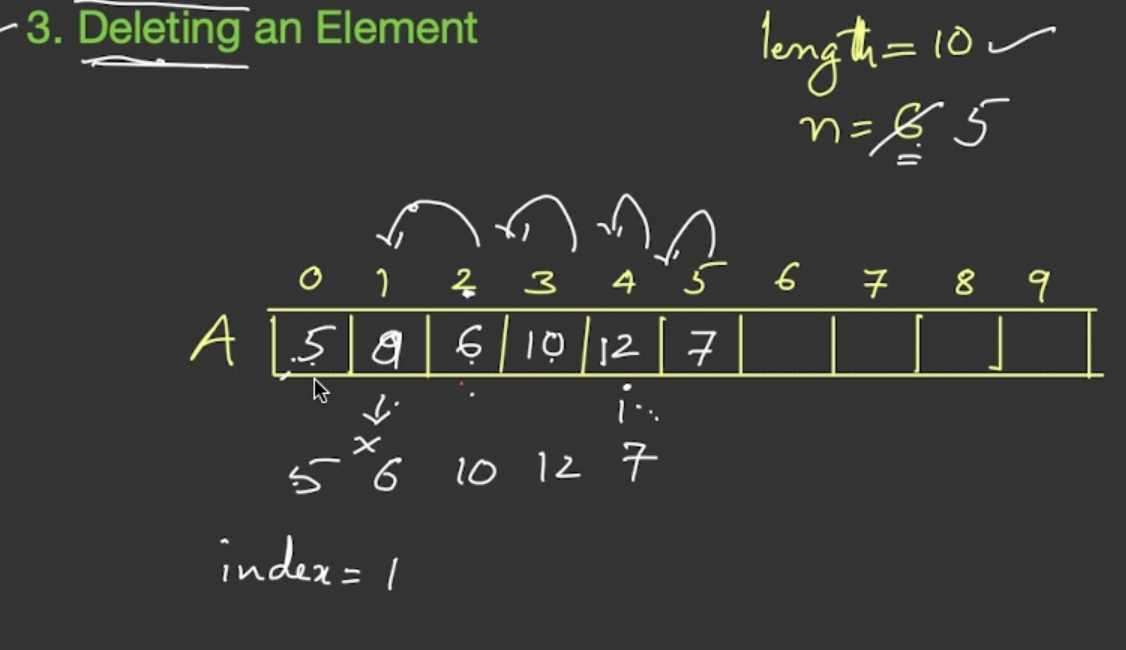 3. Deleting an Element
length = 10
n = 6 5
0 1 2 3 4 5 6 7 8 9
A 5 9 6 10 12 7
i
5 x 6 10 12 7
index = 1